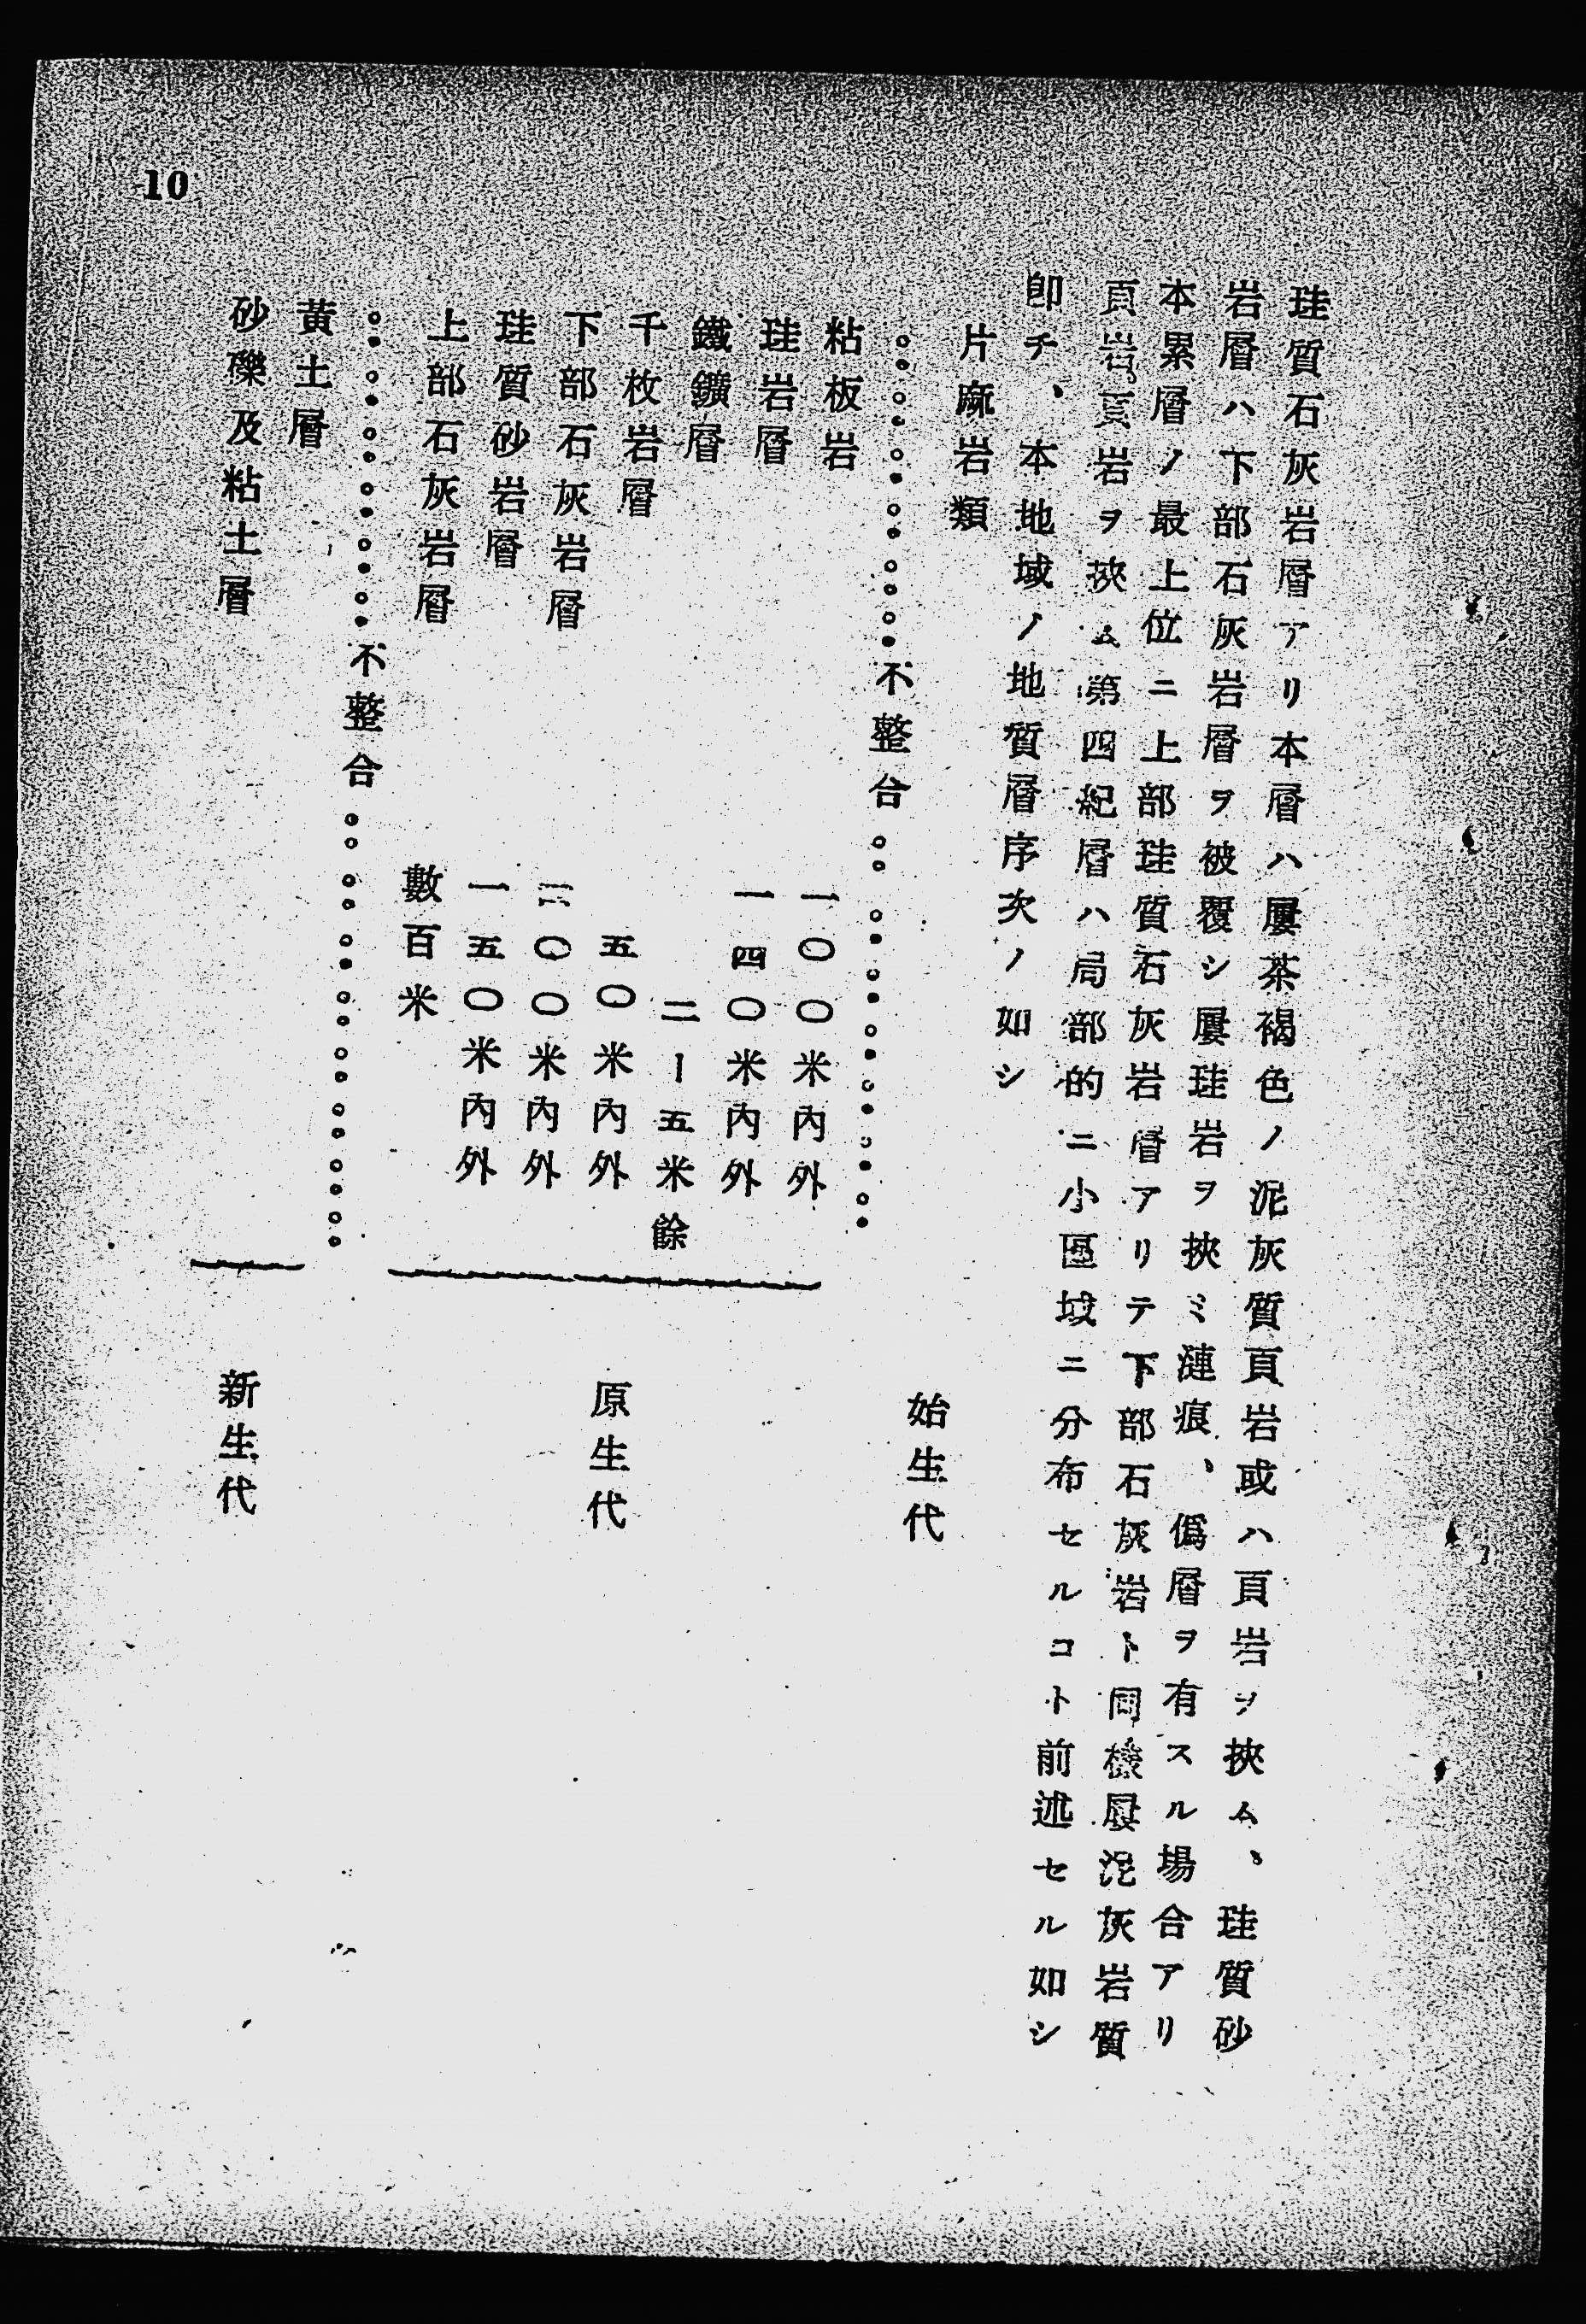 10
珪質石灰岩層アリ本層ハ屢茶褐色ノ泥灰質頁岩或ハ頁岩ヲ挾ム、珪質砂
岩層ハ下部石灰岩層ヲ被覆シ屢珪岩ヲ挾ミ漣痕、僞層ヲ有スル場合アリ
本累層ノ最上位ニ上部珪質石灰岩層アリテ下部石灰岩ト同樣屢泥灰岩質
頁岩頁岩ヲ挾ム第四紀層ハ局部的ニ小區域ニ分布セルコト前述セル如シ
卽チ、本地域ノ地質層序次ノ如シ
片麻岩類 始生代
不整合
粘板岩 一〇〇米內外
珪岩層 一四〇米內外
鐵鑛層 二ー五米餘
千枚岩層 五〇米內外
下部石灰岩層 〇〇米內外
珪質砂岩層 一五〇米內外
上部石灰岩層 數百米
原生代
不整合
黃土層
砂礫及粘土層
新生代